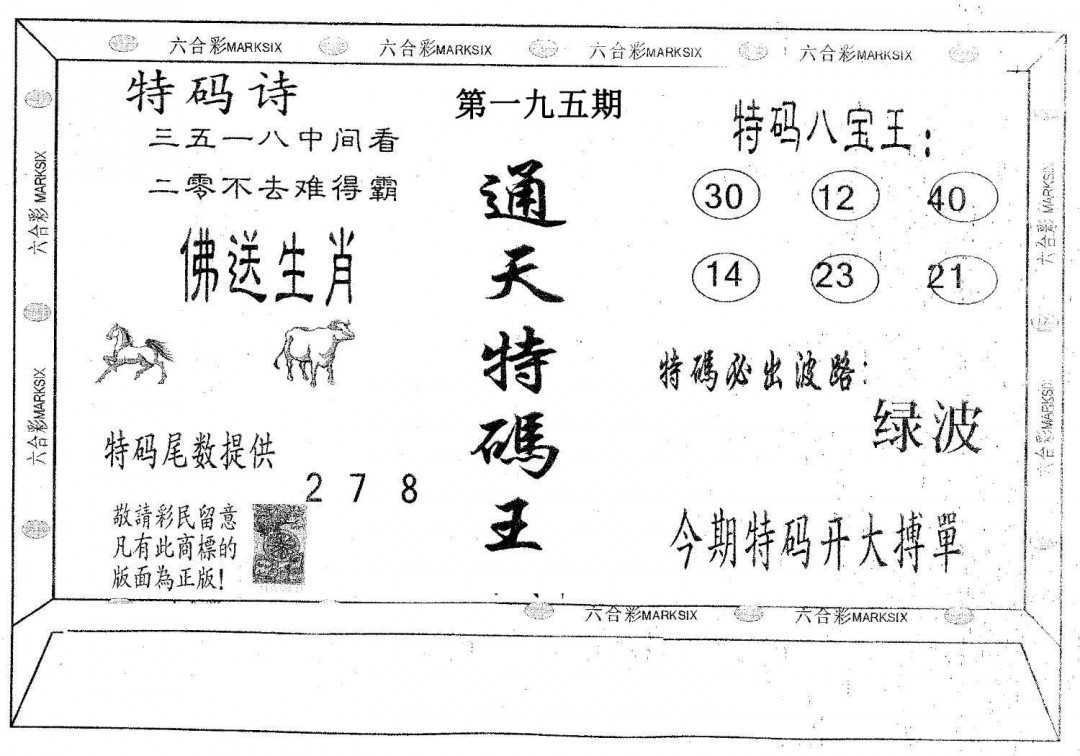 六合彩MARKSIX
六合彩MARKSIX
六合彩MARKSIX
六合彩MARKSIX
特码诗
三五一八中间看
二零不去难得霸
佛送生肖
特码尾数提供
2 7 8
敬請彩民留意
凡有此商標的
版面為正版!
第一九五期
通天特碼王
特码八宝王:
30 12 40
14 23 21
特碼必出波路:
绿波
今期特码开大搏單
六合彩 MARKSIX
六合彩MARKSIX
六合彩 MARKSIX
六合彩MARKSIX
六合彩MARKSIX
六合彩MARKSIX